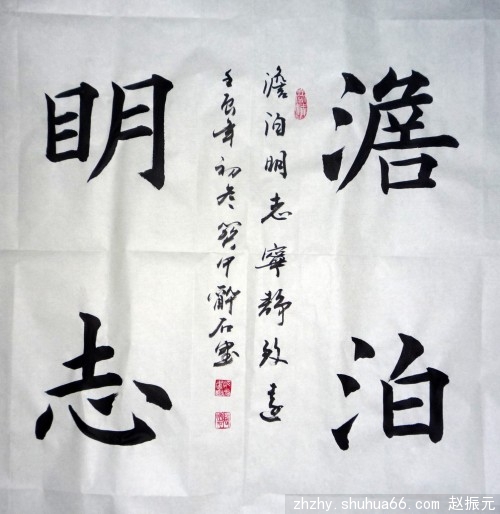 澹泊
明志
澹泊明志寧靜致遠
壬辰年初冬
zhzhy.shuhua66.com 赵振元